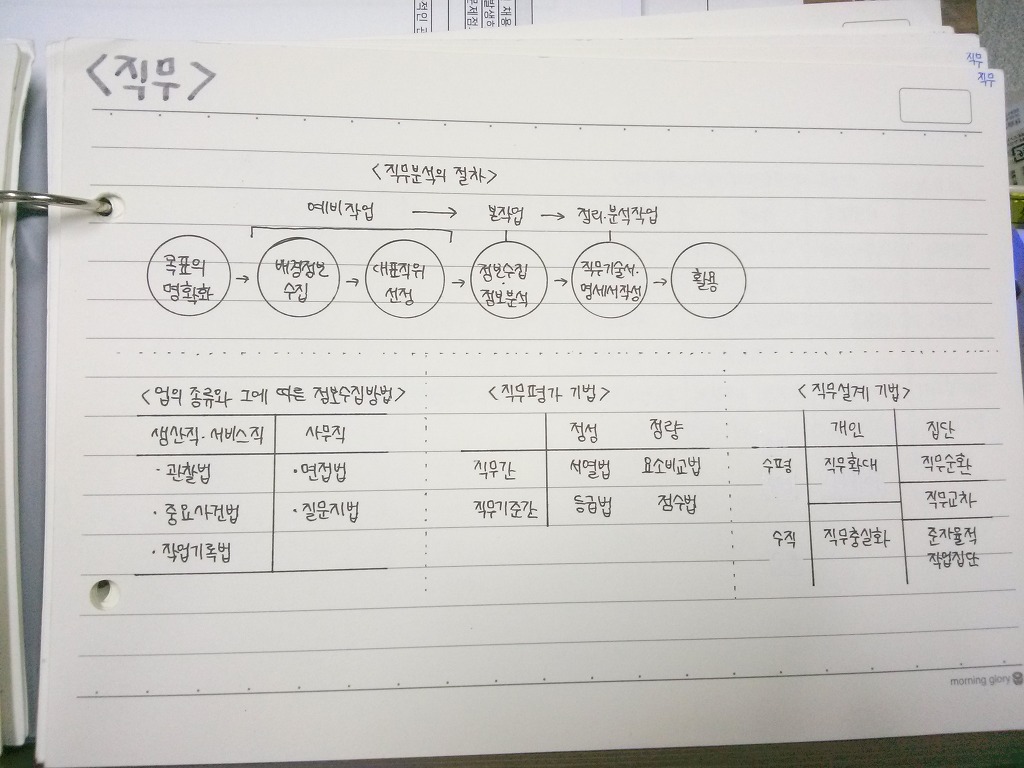 직무
직무
<직무>
<직무분석의 절차>
예비작업 → 본작업 → 정리·분석작업
목표의 명확화 → 배경정보 수집 → 대표직위 선정 → 정보수집·정보분석 → 직무기술서·명세서작성 → 활용
<업의 종류와 그에 따른 정보수집방법>
생산직·서비스직 사무직
·관찰법 ·면접법
·중요사건법 ·질문지법
·작업기록법
<직무평가 기법>
정성 정량
직무간 서열법 요소비교법
직무기준간 등급법 점수법
<직무설계 기법>
개인 집단
수평 직무확대 직무순환
직무교차
수직 직무충실화 준자율적
작업집단
morning glory